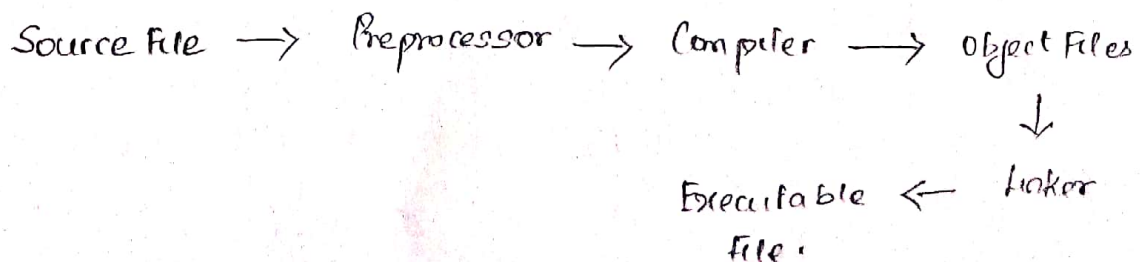 Source File → Preprocessor → Compiler → Object Files
↓
Executable ← Linker
File.